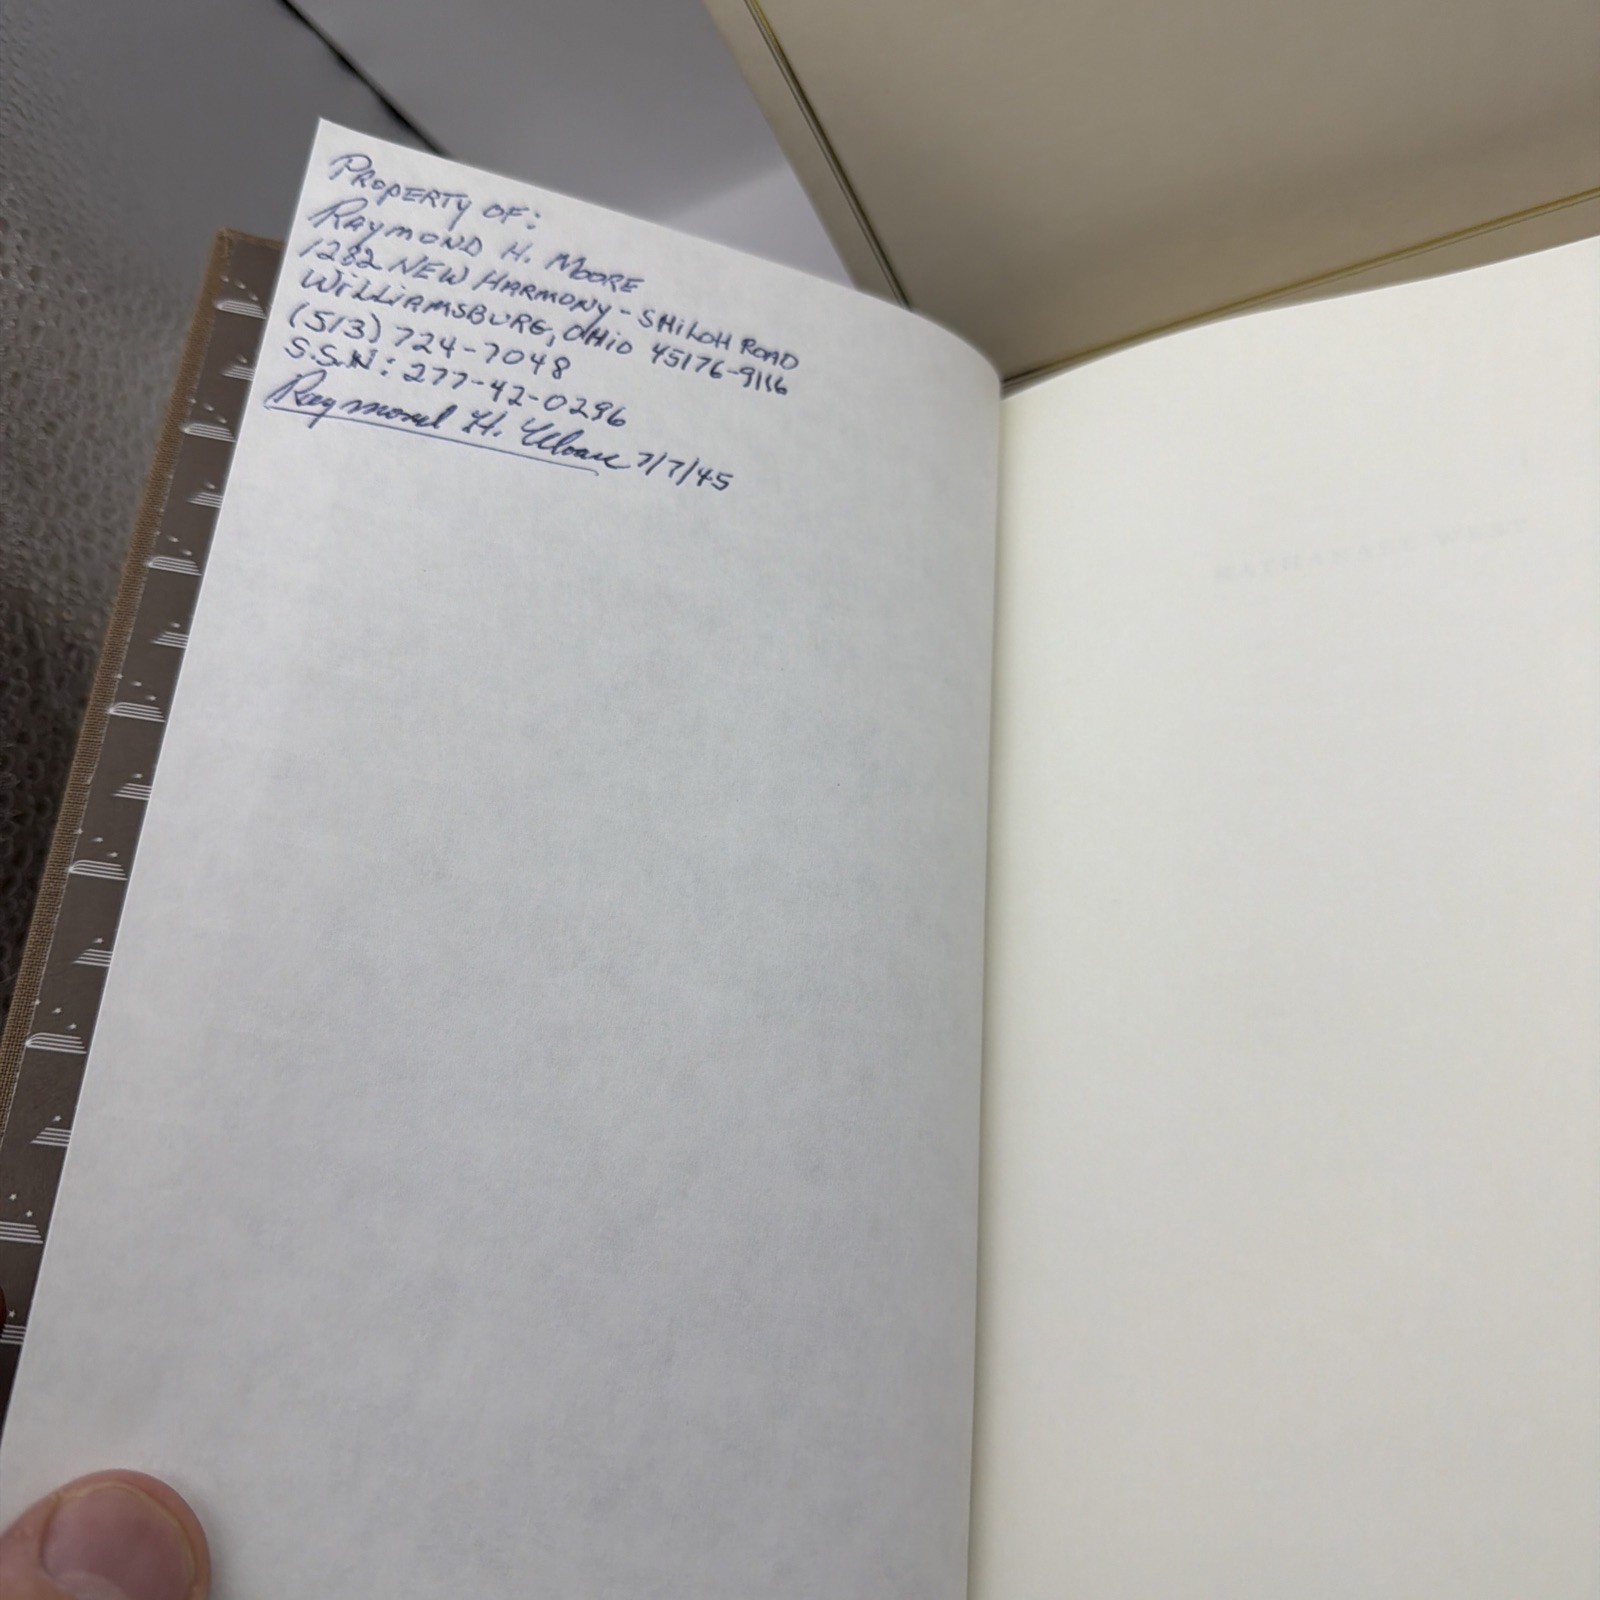 PROPERTY OF:
RAYMOND H. MOORE
1282 NEW HARMONY-SHILOH ROAD
WILLIAMSBURG, OHIO 45176-9116
(513) 724-7048
S.S.N: 277-42-0296
Raymond H. Moore 7/7/45
NATHANAEL WEST